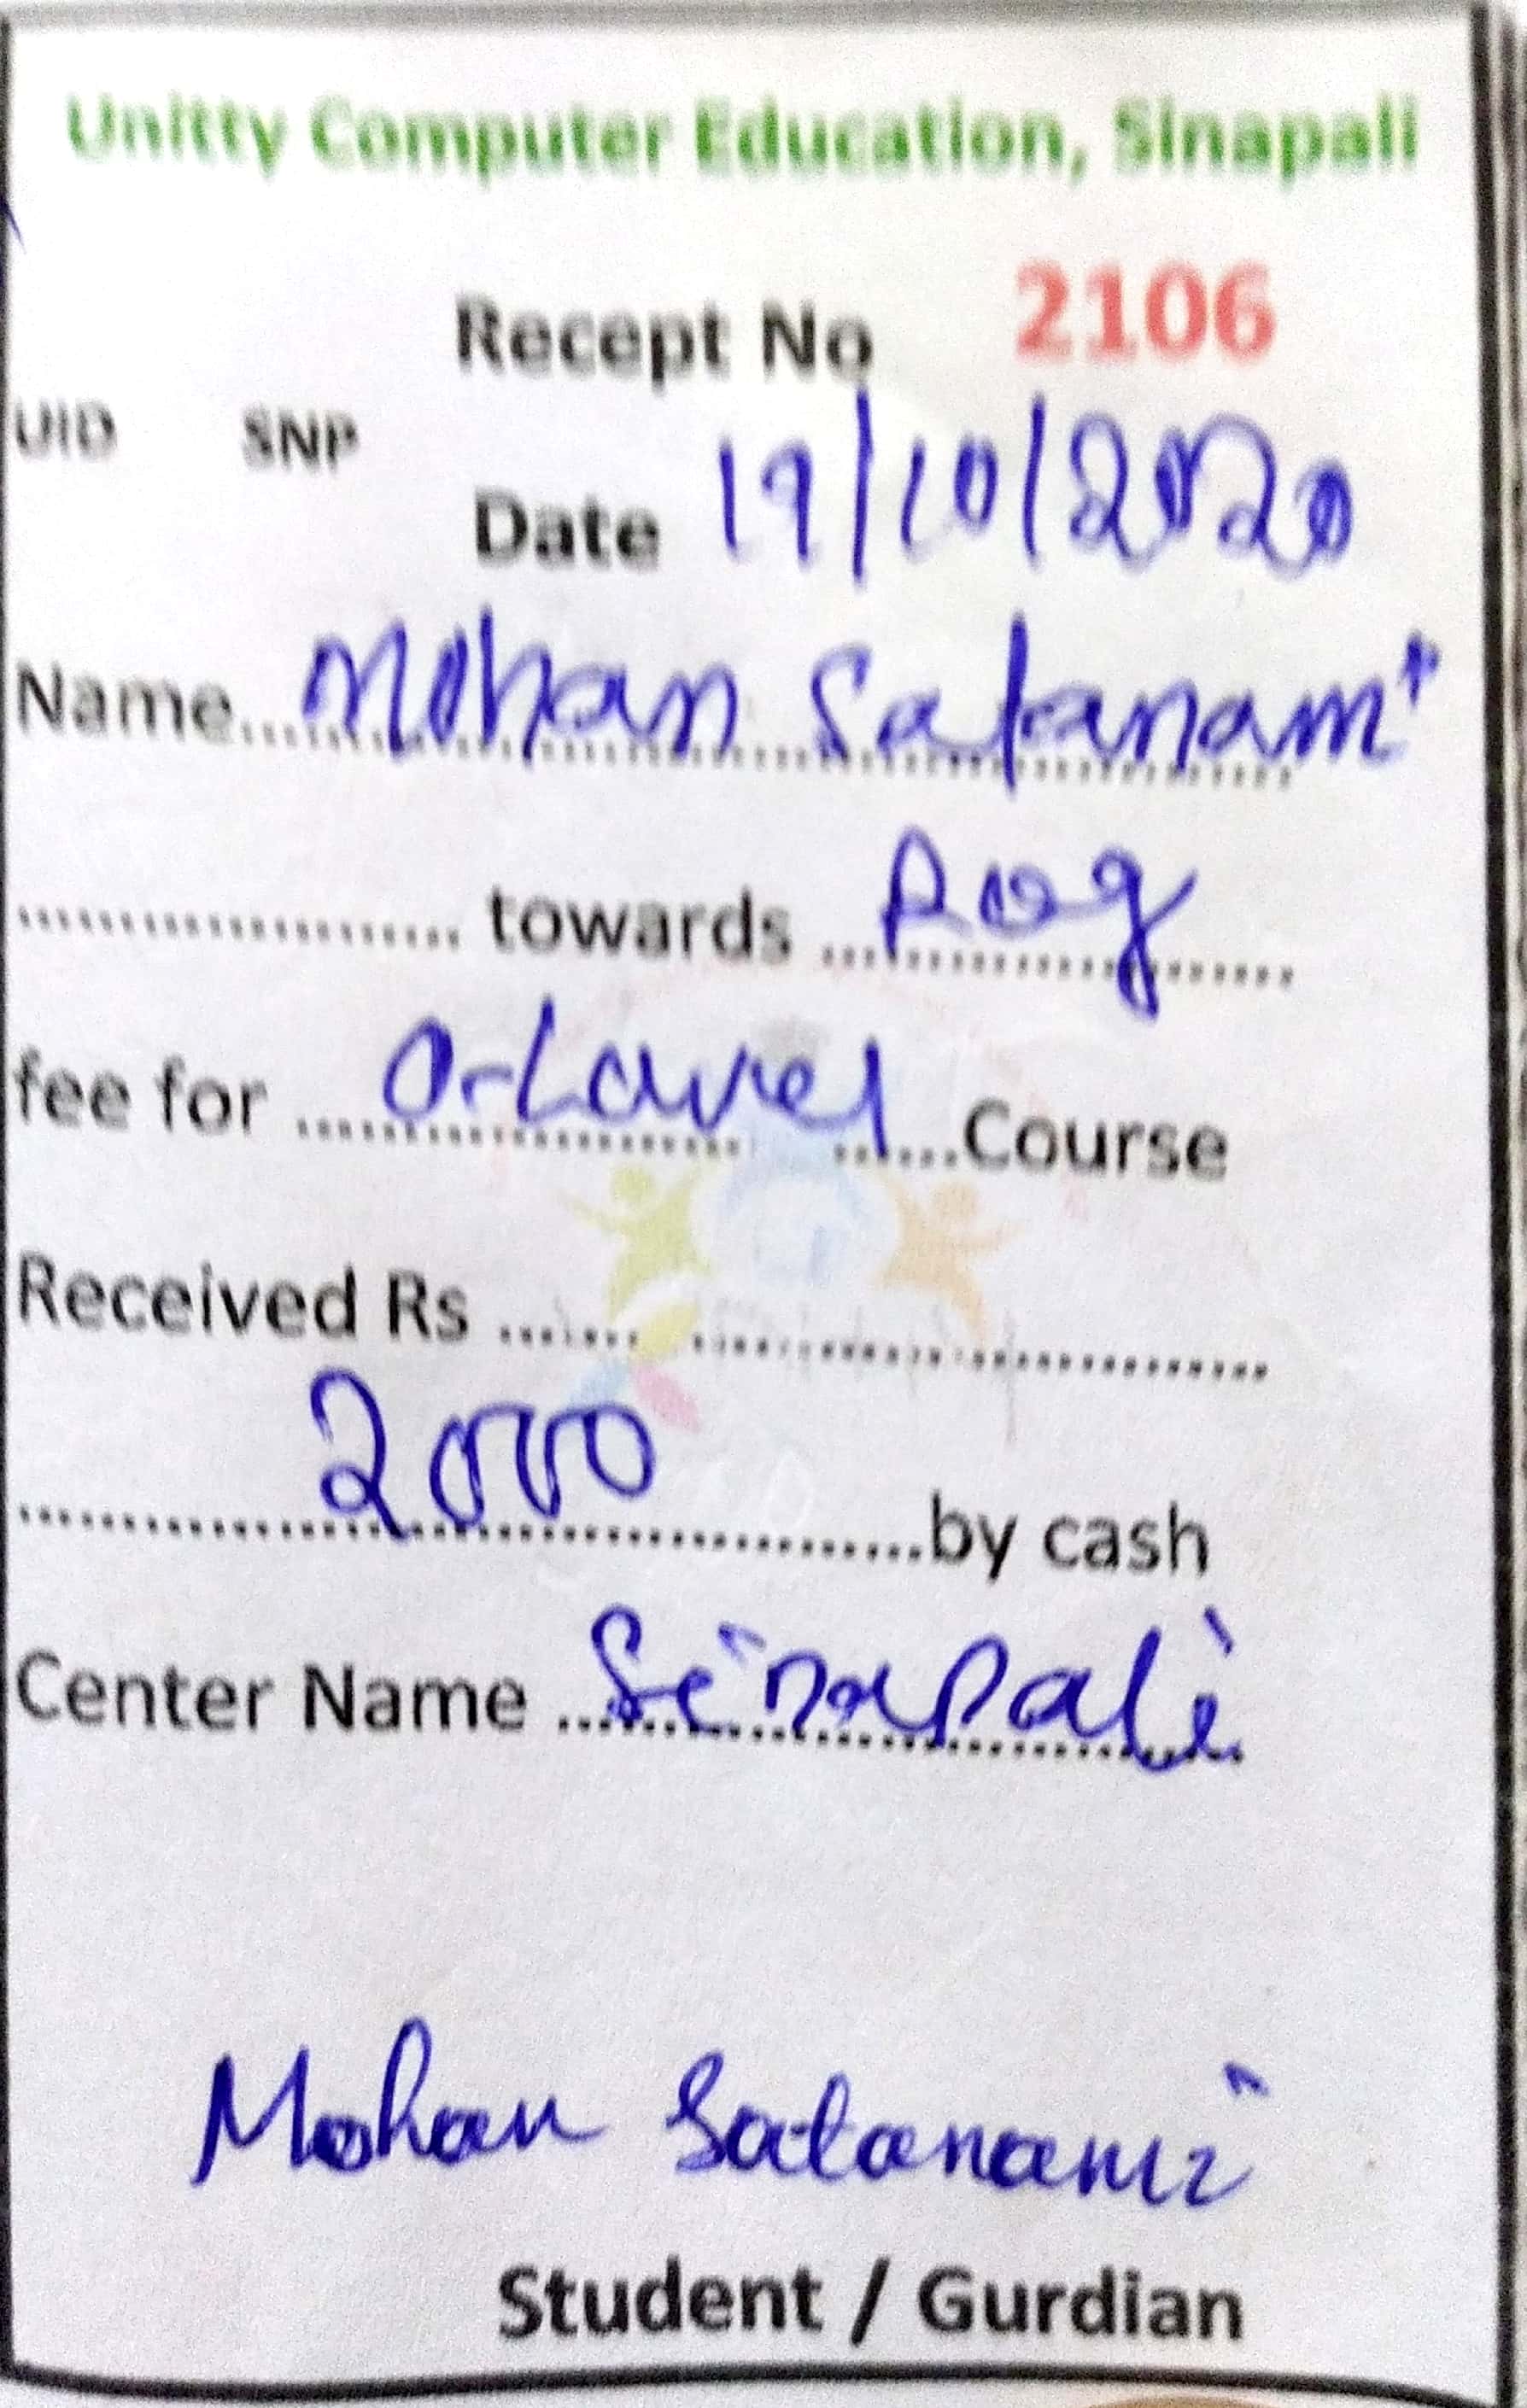 Unitty Computer Education, Sinapali
Recept No 2106
UID SNP
Date 19/10/2020
Name Mohan Satanami
towards
fee for O-Lavel Course
Received Rs
2000 by cash
Center Name Sinapali
Mohan Satanami
Student / Gurdian